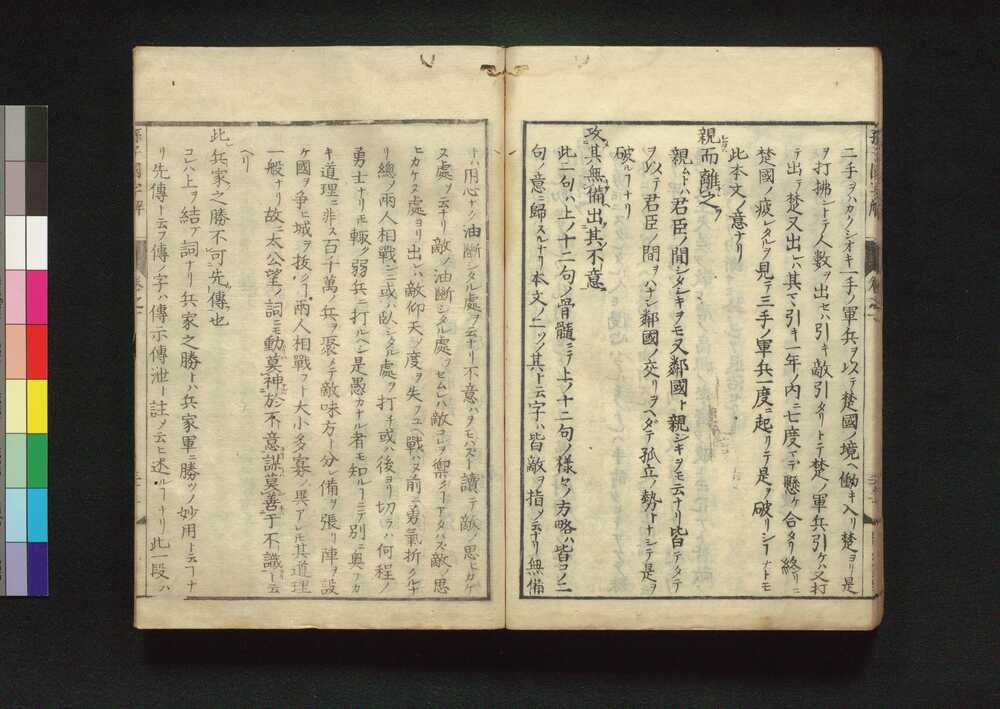 二手ヲハカクシオキ一手ノ軍兵ヲ以テ楚國ノ境ヘ働キ入リ楚ヨリ是
ヲ打拂ントテ人數ヲ出セハ引キ敵引タリトテ楚ノ軍兵引ケハ又打
テ出テ楚又出レハ其マヽ引キ一年ノ内ニ七度マデ懸ケ合タリ終リニ
楚國ノ疲レタルヲ見テ三手ノ軍兵一度ニ起リテ是ヲ破リシヿナトモ
此本文ノ意ナリ
親而離之
親ムトハ君臣ノ間シタシキヲモ又鄰國ト親シキヲモ云ナリ皆テタテ
ヲ以テ君臣ノ間ヲハナシ鄰國ノ交リヲヘダテ孤立ノ勢トナシテ是ヲ
破ルヿナリ
攻其無備出其不意
此二句ハ上ノ十二句ノ骨髓ニテ上ノ十二句ノ様々ノ方略ハ皆コノ二
句ノ意ニ歸スルナリ本文ノ二ツノ其ト云字ハ皆敵ヲ指ノ云ナリ無備
トハ用心ナク油斷シタル處ヲ云ナリ不意ハヲモハズト讀テ敵ノ思ヒカケ
ス處ヲ云ナリ敵ノ油斷シタル處ヲセムレハ敵コレヲ禦クニアタハズ敵ノ思
ヒカケヌ處ヨリ出レハ敵仰天ノ度ヲ失フユヘ戰ハヌ前ニ勇氣折クルナ
リ總ノ兩人相戰ニ或ハ臥シタル處ヲ打チ或ハ後ヨリ切ラハ何程ノ
勇士ナリモ輙ク弱兵ニ打ルヘシ是愚カナル者モ知ルヿニテ別ニ奥フカ
キ道理ニ非ス百千萬ノ兵ヲ聚メテ敵味方ト分レ備ヲ張リ陣ヲ設
ケ國ヲ争ヒ城ヲ抜クヿ兩人相戰フト大小多寡ノ異アレモ其道理
一般ナリ故ニ太公望ノ詞ニモ動莫神於不意謀莫善于不識ト云
ヘリ
此兵家之勝不可先傳也
コレハ上ヲ結フ詞ナリ兵家之勝トハ兵家軍ニ勝ツノ妙用ト云コトナ
リ先傳ト云フ傳ノ字ハ傳示傳泄ト註メ云ヒ述ルヿナリ此一段ハ